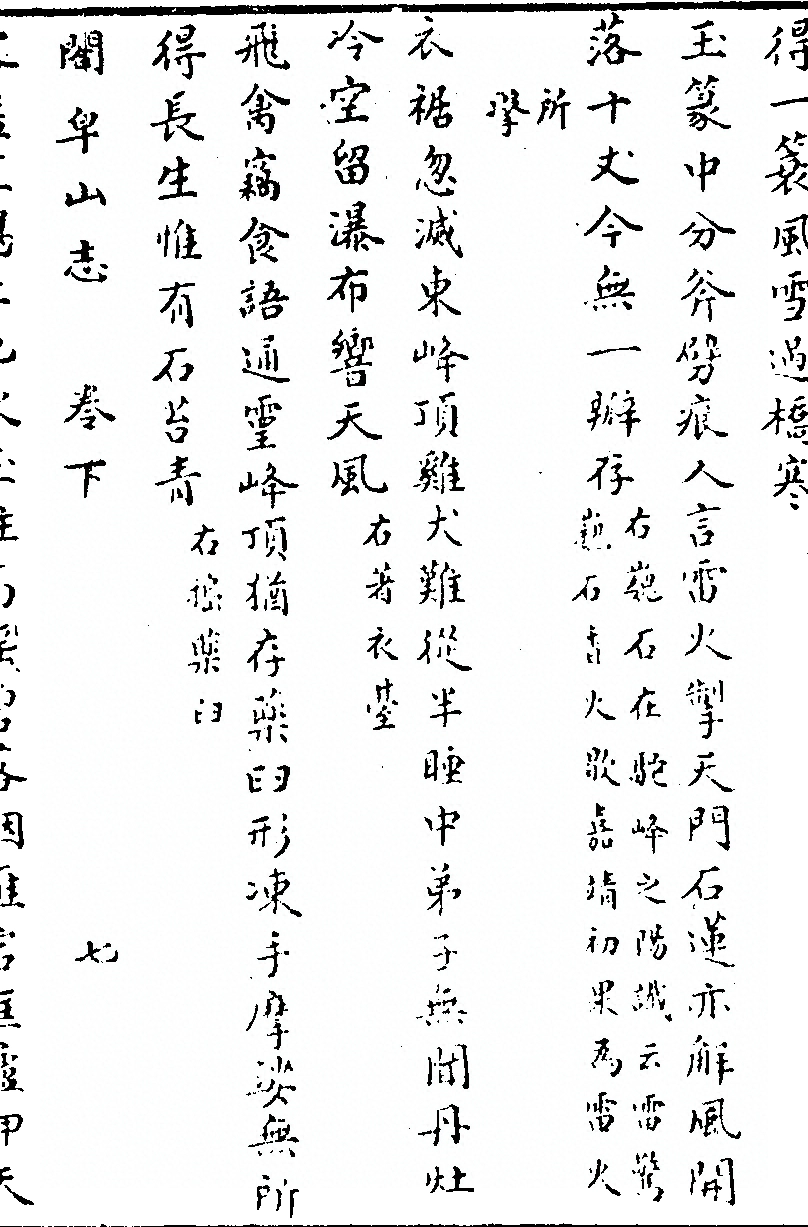 得一蓑風雪過橋寒
玉篆中分斧劈痕人言雷火掣天門石蓮亦解風開
落十丈今無一瓣存右巍石在駝峰之陽讖云雷驚
巍石香火歇嘉靖初果為雷火
所擊
衣裾忽滅東峰頂雞犬難從半睡中弟子無聞丹灶
冷空留瀑布響天風右著衣臺
飛禽竊食語通靈峰頂猶存藥臼形凍手摩娑無所
得長生惟有石苔青右搗藥臼
閤皁山志 卷下 七